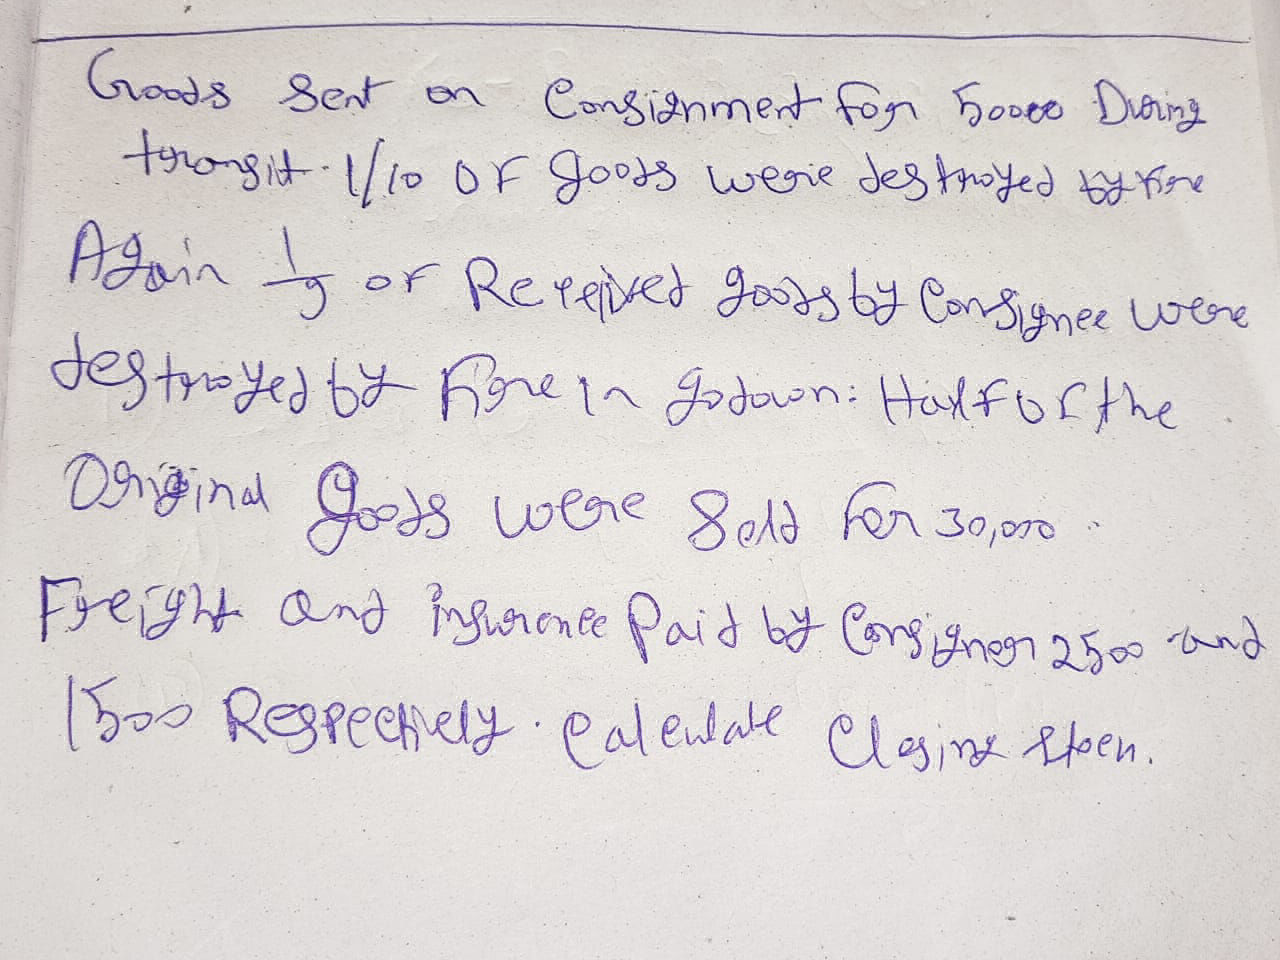 Goods sent on Consignment for 50000 During
transit. 1/10 of goods were destroyed by fire
Again 1/9 of Received goods by Consignee were
destroyed by fire in godown: Half of the
Original goods were sold for 30,000.
Freight and insurance Paid by Consignor 2500 and
1500 Respectively. Calculate Closing